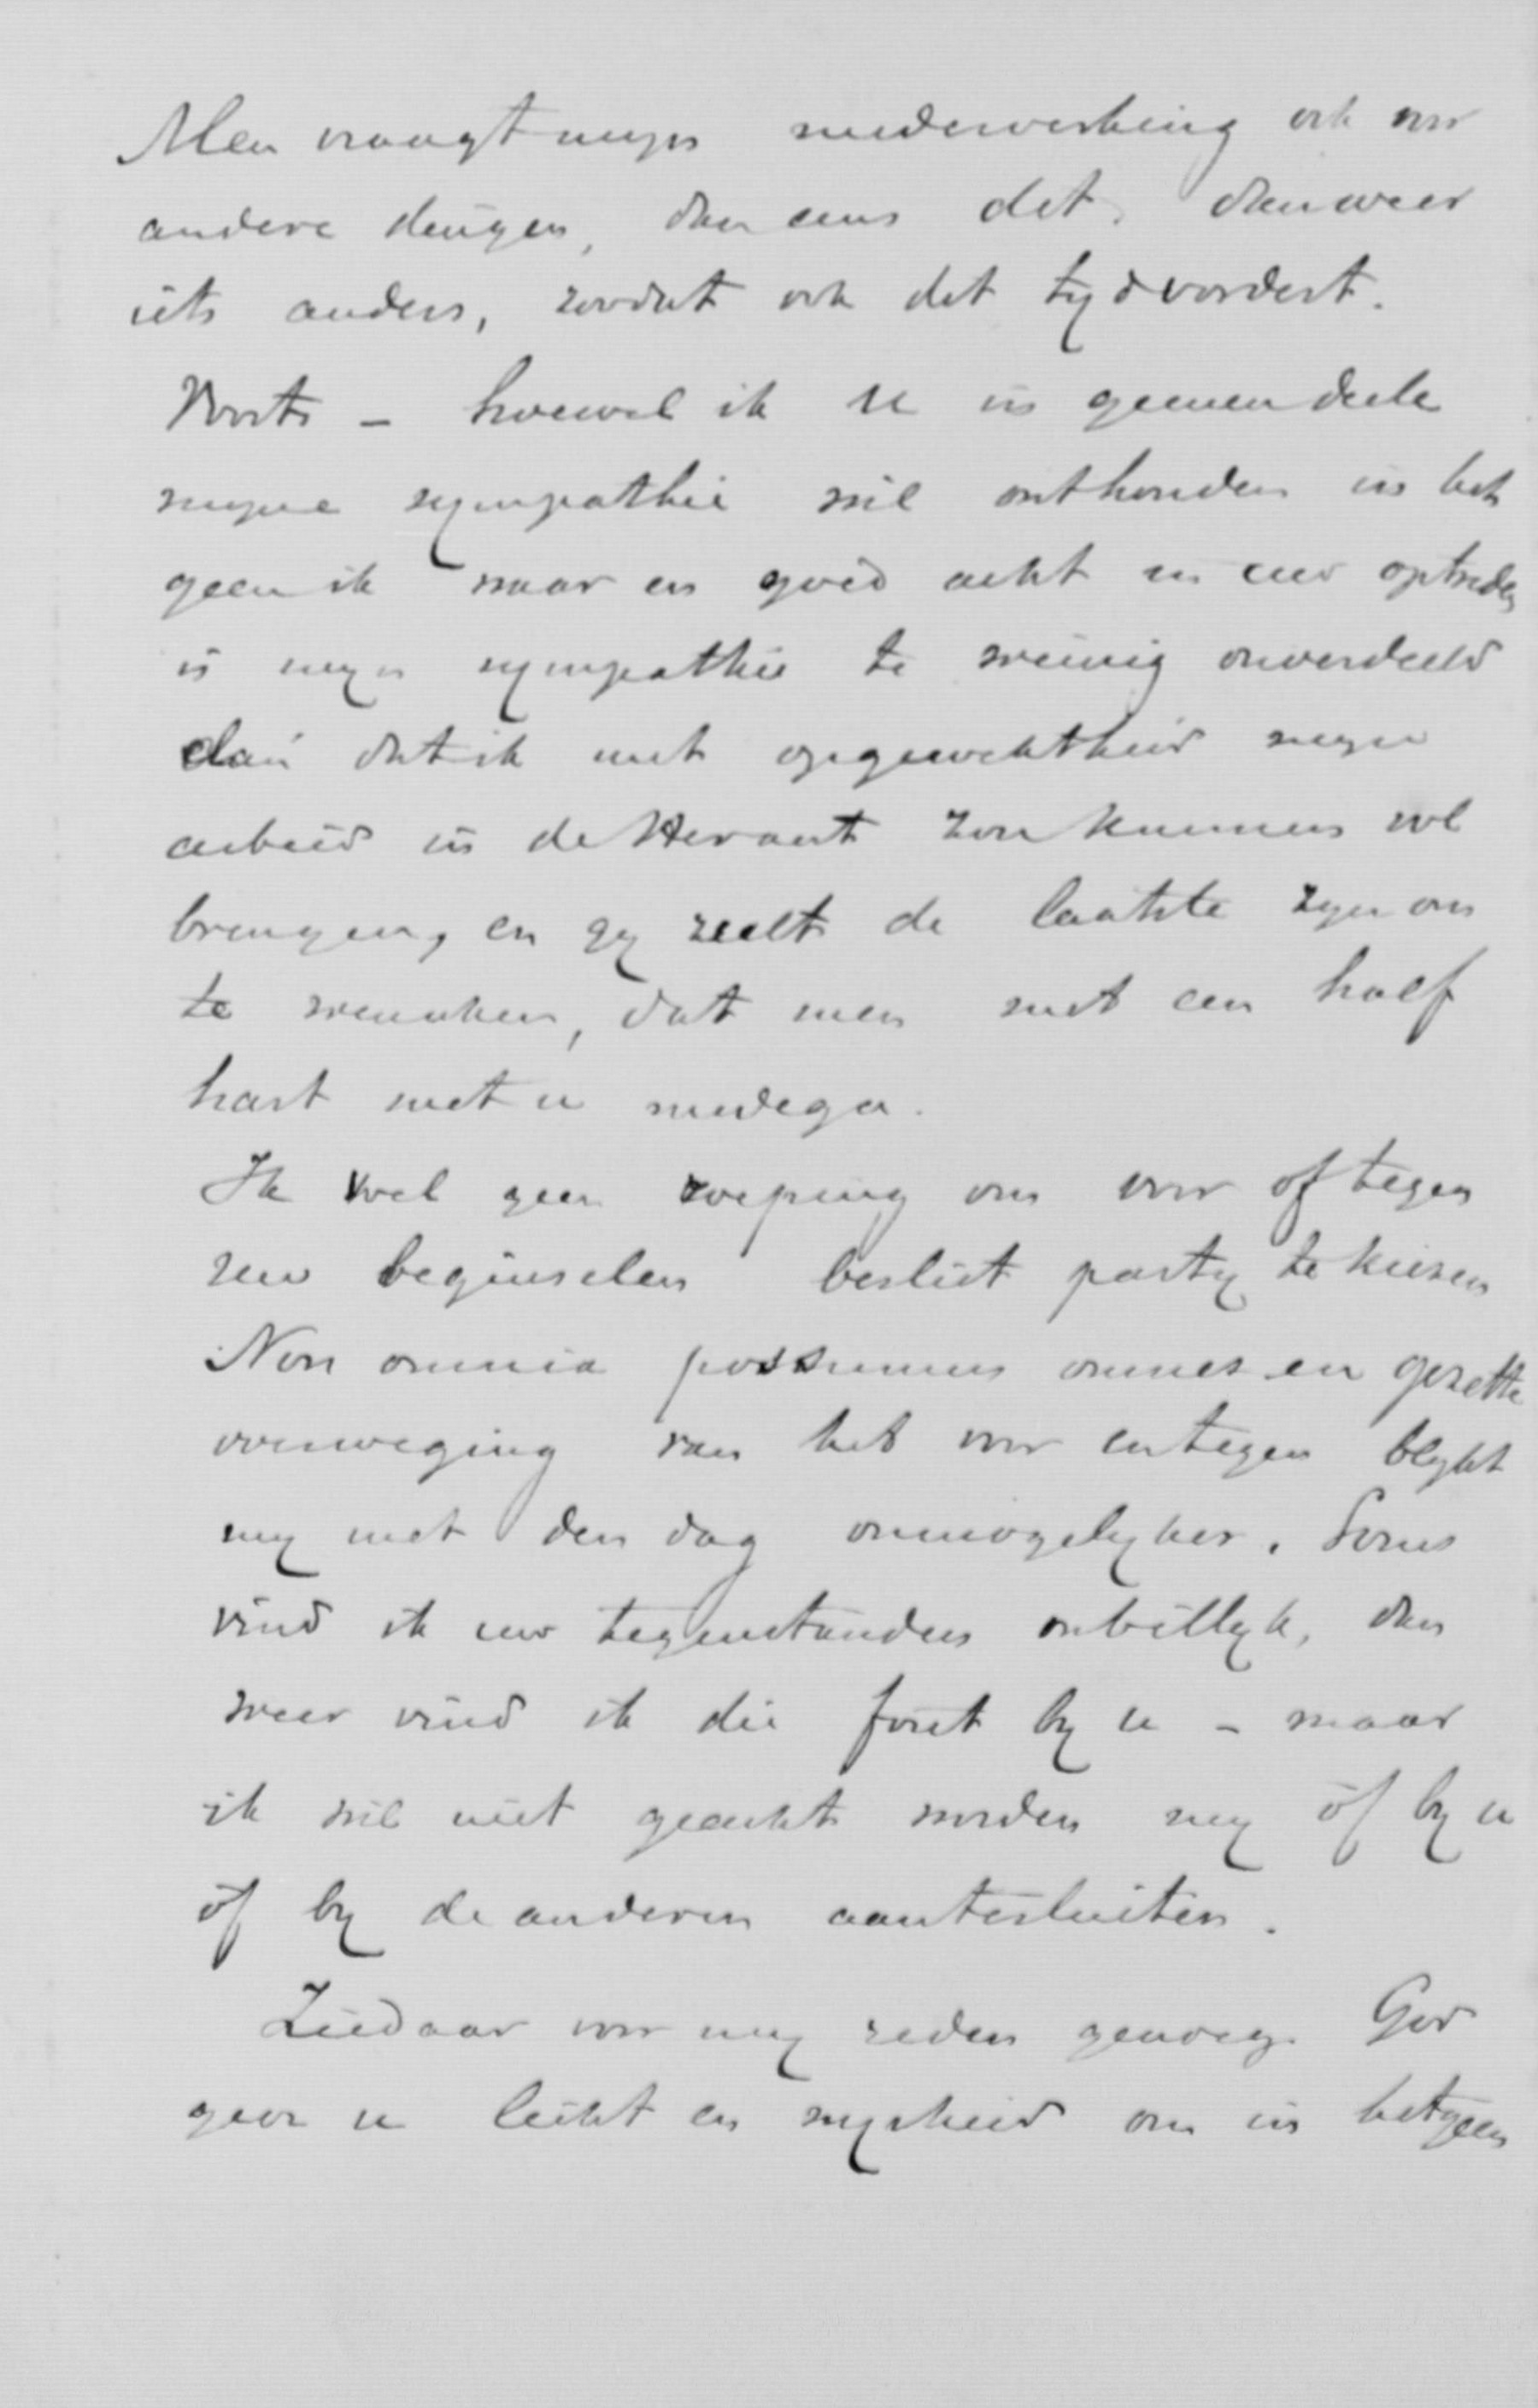 Men vraagt myn medewerking ook voor
andere dingen, dan eens dit, dan weer
iets anders, zoodat ook dit tyd vordert.
Voorts - hoewel ik u in geenen deele
myne sympathie wil onthouden in het
geen ik waar en goed acht in uw optreden
is myn sympathie te weinig onverdeeld
dan dat ik met opgewektheid myn
arbeid in de Heraut zou kunnen vol
brengen, en gy zult de laatste zyn om
te wenschen, dat men met een half
hart met u medega.
Ik voel geen roeping om voor of tegen
uw beginselen beslist party te kiezen
Non omnia possumus omnes en gezette
overweging van het voor en tegen blykt
my met den dag onmogelyker. Soms
vind ik uw tegenstanders onbillyk, dan
weer vind ik die fout by u - maar
ik wil niet geacht worden my óf by u
óf by de anderen aantesluiten.
Ziedaar voor my reden genoeg. God
geve u licht en wysheid om in hetgeen